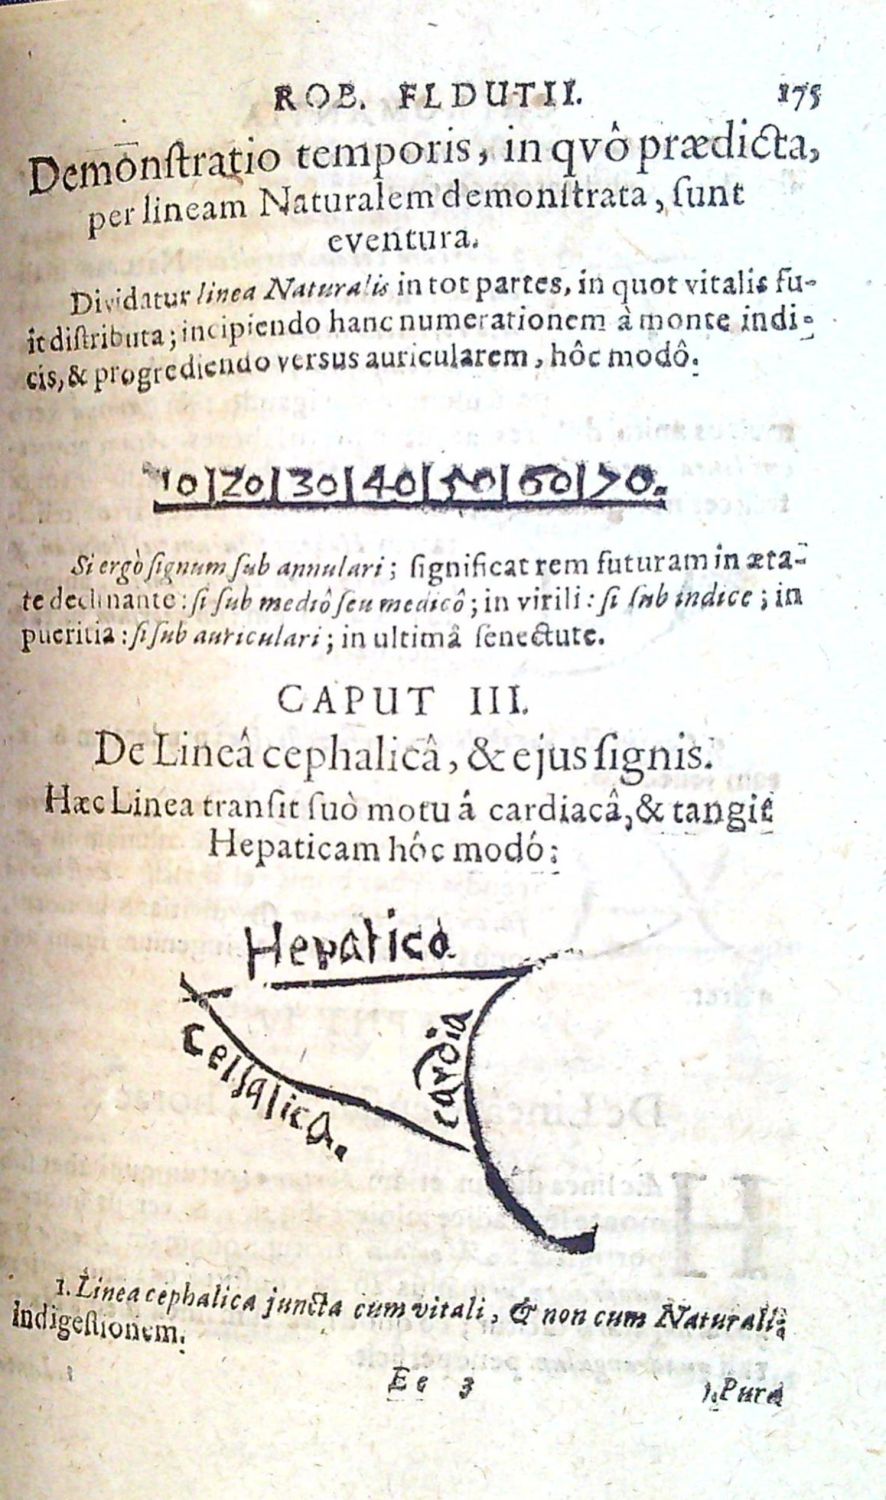 ROB. FLDUTII. 175
Demōnſtratio temporis, in qvô prædicta,
per lineam Naturalem demonſtrata, ſunt
eventura.
Dividatur linea Naturalis in tot partes, in quot vitalis fu-
it diſtributa; incipiendo hanc numerationem à monte indi-
cis, & progrediendo versus auricularem, hôc modô.
10|20|30|40|50|60|70.
Si ergò ſignum ſub annulari; ſignificat rem futuram in æta-
te declinante: ſi ſub mediô ſeu medicô; in virili: ſi ſub indice; in
pueritia: ſi ſub auriculari; in ultimâ ſenectute.
CAPUT III.
De Lineâ cephalicâ, & ejus ſignis.
Hæc Linea tranſit ſuò motu á cardiacâ, & tangit
Hepaticam hóc modó:
Hepatica
cardia
Cefſalica.
1. Linea cephalica juncta cum vitali, & non cum Naturali;
Indigeſtionem.
Ee 3 1. Pura